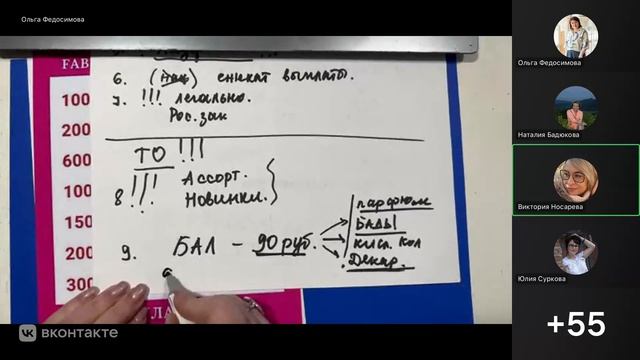 Ольга Федосимова
FAB
100
200
600
100
150
200
300
6. (Нац) снижат выплаты.
7. !!! легально.
Рос. зак
ТО !!!
8 !!! Ассорт.
Новинки.
9. БАЛ - 90 руб.
парфюм
БАДЫ
кисл. кол
Декор.
ЛА
вконтакте
Ольга Федосимова
Наталия Бадюкова
Виктория Носарева
Юлия Суркова
+55